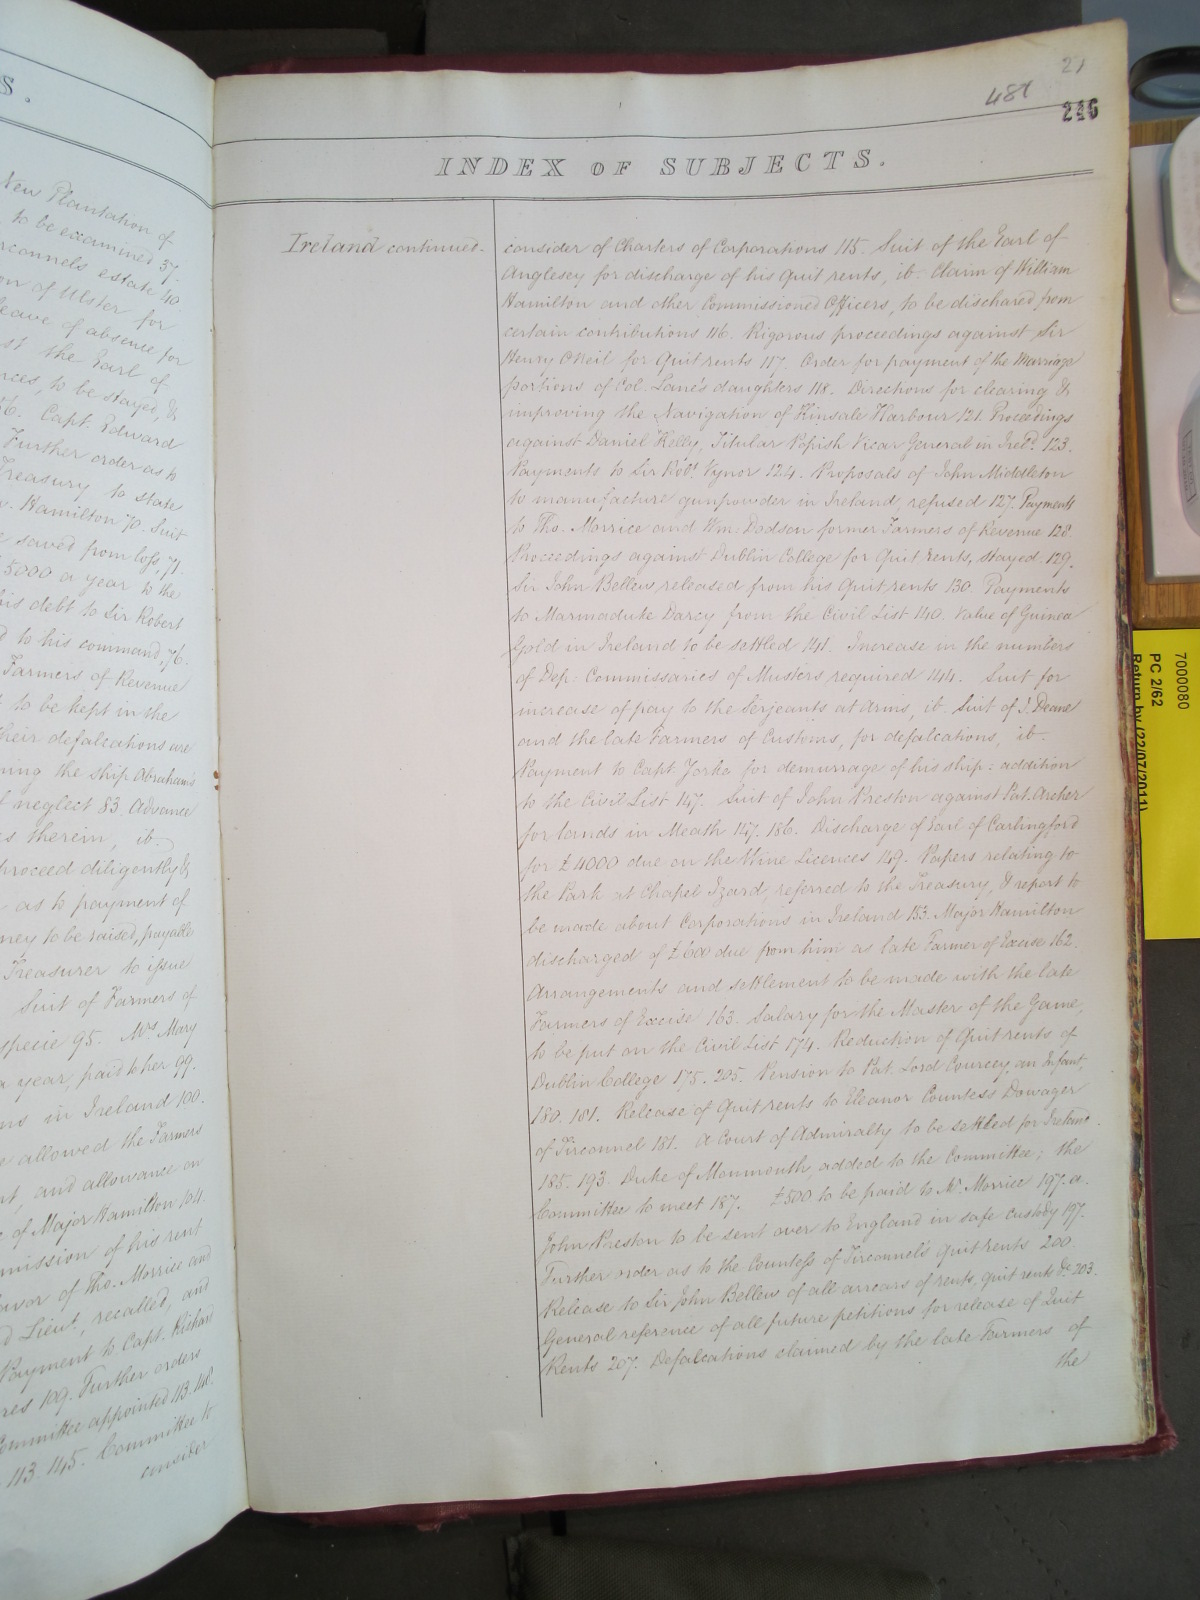 S.
New Plantation of
to be examined 37.
rconnels estate 40
on of Ulster for
leave of absence for
st the Earl of
nces, to be stayed, &
6. Capt. Edward
Further order as to
Treasury to state
Hamilton 70. Suit
saved from loss, 71
5000 a year to the
his debt to Sir Robert
d to his command, 76.
Farmers of Revenue
to be kept in the
their defalcations are
ning the ship Abraham's
f neglect 83. Advance
s therein, ib.
proceed diligently &
as to payment of
ney to be raised, payable
Treasurer to issue
Suit of Farmers of
specie 95. Mrs. Mary
a year, paid to her 99.
ns in Ireland 100.
e allowed the Farmers
nt, and allowance on
of Major Hamilton 104.
mission of his rent
avor of Tho. Morrice and
d Lieut., recalled, and
Payment to Capt. Richard
res 109. Further orders
Committee appointed 113. 148.
113. 145. Committee to
consider
21
487
246
INDEX OF SUBJECTS.
Ireland continued.
consider of Charters of Corporations 115. Suit of the Earl of
Anglesey for discharge of his Quit rents, ib. Claim of William
Hamilton and other Commissioned Officers, to be dischared from
certain contributions 116. Rigorous proceedings against Sir
Henry O'Neil for Quit rents 117. Order for payment of the Marriage
portions of Col. Lane's daughters 118. Directions for clearing &
improving the Navigation of Kinsale Harbour 121. Proceedings
against Daniel Kelly, Titular Popish Vicar General in Ireld. 123.
Payments to Sir Robt. Vynor 124. Proposals of John Middleton
to manufacture gunpowder in Ireland, refused 127. Payments
to Tho. Morrice and Wm. Dodson former Farmers of Revenue 128.
Proceedings against Dublin College for Quit Rents, stayed. 129.
Sir John Bellew released from his Quit rents 130. Payments
to Marmaduke Darcy from the Civil List 140. Value of Guinea
Gold in Ireland to be settled 141. Increase in the numbers
of Dep: Commissaries of Musters required 144. Suit for
increase of pay to the Serjeants at Arms, ib. Suit of J. Deane
and the late Farmers of Customs, for defalcations, ib.
Payment to Capt. Yorke for demurrage of his ship: addition
to the Civil List 147. Suit of John Preston against Pat. Archer
for lands in Meath 147. 186. Discharge of Earl of Carlingford
for £4000 due on the Wine Licences 149. Papers relating to
the Park at Chapel Izard, referred to the Treasury, & report to
be made about Corporations in Ireland 153. Major Hamilton
discharged of £600 due from him as late Farmer of Excise 162.
Arrangements and settlement to be made with the late
Farmers of Excise 163. Salary for the Master of the Game,
to be put on the Civil List 174. Reduction of Quit rents of
Dublin College 175. 205. Pension to Pat. Lord Courcey, an Infant,
180. 181. Release of Quit rents to Eleanor Countess Dowager
of Tirconnel 181. A Court of Admiralty to be settled for Ireland.
185. 193. Duke of Monmouth, added to the Committee; the
Committee to meet 187. £500 to be paid to Mr. Morrice 197. a.
John Preston to be sent over to England in safe custody 197.
Further order as to the Countess of Tirconnel's Quit rents 200.
Release to Sir John Bellew of all arrears of rents, quit rents &c. 203.
General reference of all future petitions for release of Quit
Rents 207. Defalcations claimed by the late Farmers of
the
7000080
PC 2/62
Return by (22/07/2011)